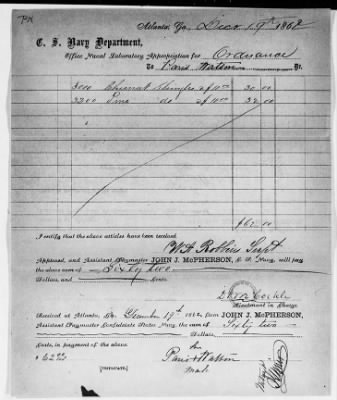 Atlanta, Ga. Decr. 19th 1862
C. S. Navy Department,
Office Naval Laboratory Appropriation for Ordnance
To Paris Watson Dr.
3000 Chesnut Shingles 30 00
3200 Pine do 32 00
$62 00
I certify that the above articles have been received.
W. H. Robbins Supt
Approved, and Assistant Paymaster JOHN J. McPHERSON, C. S. Navy, will pay
the above sum of Sixty two
Dollars, and Cents.
Lieutenant in Charge
Received at Atlanta, Ga. December 19th 1862, from JOHN J. McPHERSON,
Assistant Paymaster Confederate States Navy, the sum of Sixty two
Dollars,
Cents, in payment of the above
$ 62 00
Paris Watson
mark
[DUPLICATE.]